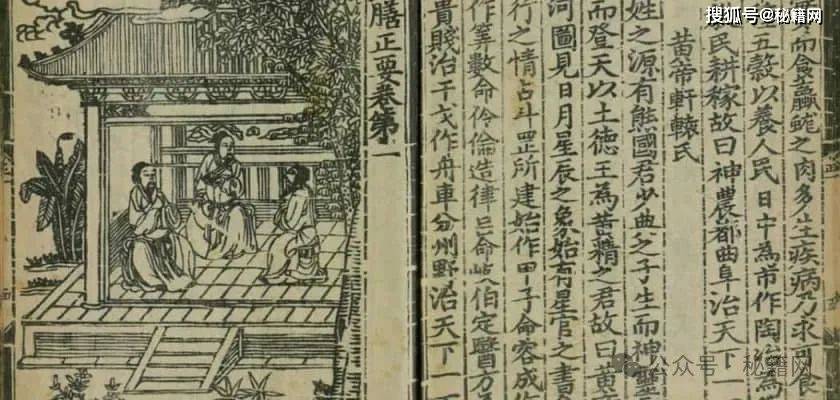 而食蠃蛖之肉多生疾病乃求可食
五穀以養人民日中為市作陶冶為
民耕稼故曰神農都曲阜治天下一
黃帝軒轅氏
姓之源有熊國君少典之子生而神靈
而登天以土德王為黃精之君故曰黃
河圖見日月星辰之象始有星官之書
行之情占斗罡所建始作甲子命容成作
作筭數命伶倫造律呂命岐伯定醫方
貴賤治干戈作舟車分州野治天下一
膳正要卷第一
搜狐号@秘籍网
公众号·秘籍网